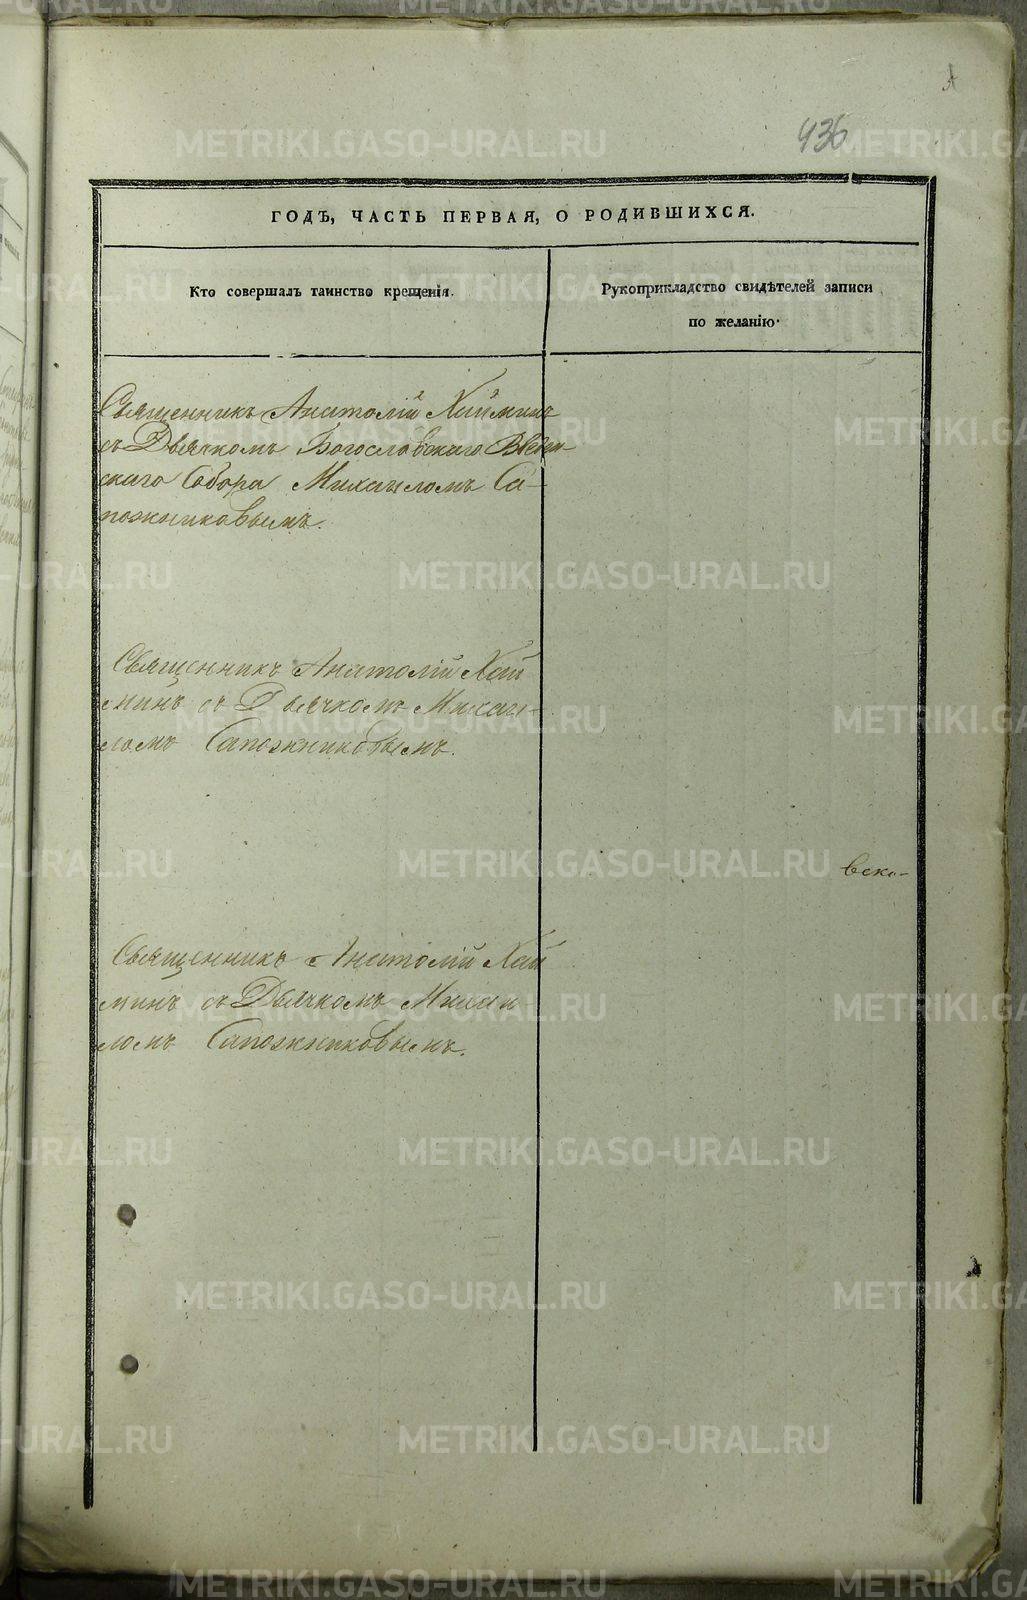 436
ГОДЪ, ЧАСТЬ ПЕРВАЯ, О РОДИВШИХСЯ.
Кто совершалъ таинство крещенія.
Рукоприкладство свидѣтелей записи
по желанію.
Священникъ Анатолій Хайминъ
съ Дьячкомъ Богословскаго Введен-
скаго Собора Михаиломъ Са-
пожниковымъ.
Священникъ Анатолій Хай
минъ съ Дьячкомъ Михаи-
ломъ Сапожниковымъ.
веко-
Священникъ Анатолій Хай
минъ съ Дьячкомъ Михаи
ломъ Сапожниковымъ.
METRIKI.GASO-URAL.RU